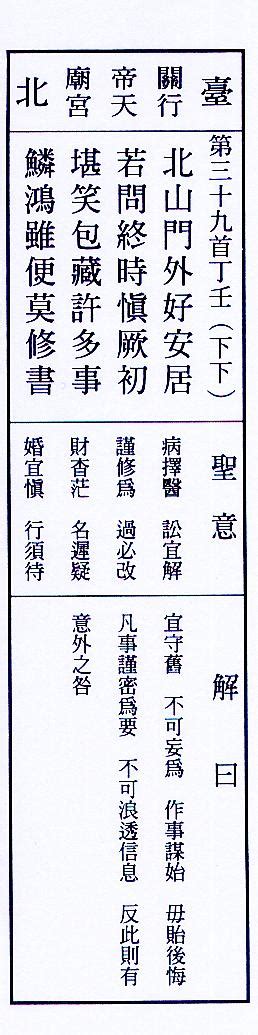 臺
關帝廟
行天宮
北
第三十九首丁壬（下下）
北山門外好安居
若問終時愼厥初
堪笑包藏許多事
鱗鴻雖便莫修書
聖意
病擇醫 訟宜解
謹修爲 過必改
財杳茫 名遲疑
婚宜愼 行須待
解曰
宜守舊 不可妄爲 作事謀始 毋貽後悔
凡事謹密爲要 不可浪透信息 反此則有
意外之咎